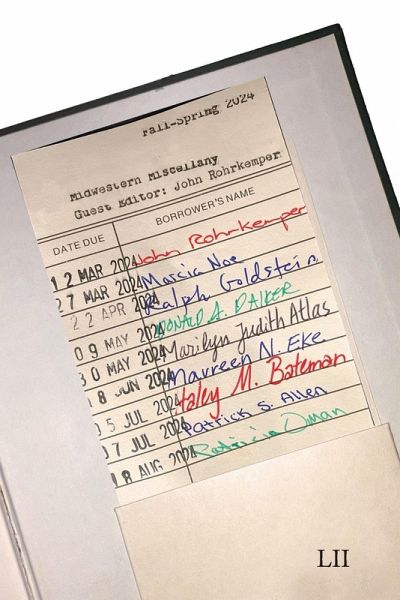 Fall-Spring 2024
Midwestern Miscellany
Guest Editor: John Rohrkemper
DATE DUE BORROWER'S NAME
12 MAR 2024 John Rohrkemper
27 MAR 2024 Marcia Noe
22 APR 2024 Ralph Goldstein
09 MAY 2024 DONALD A. DAIKER
30 MAY 2024 Marilyn Judith Atlas
8 JUN 2024 Maureen N. Eke
05 JUL 2024 Staley M. Bateman
07 JUL 2024 Patrick S. Allen
18 AUG 2024 Patricia Oman
LII